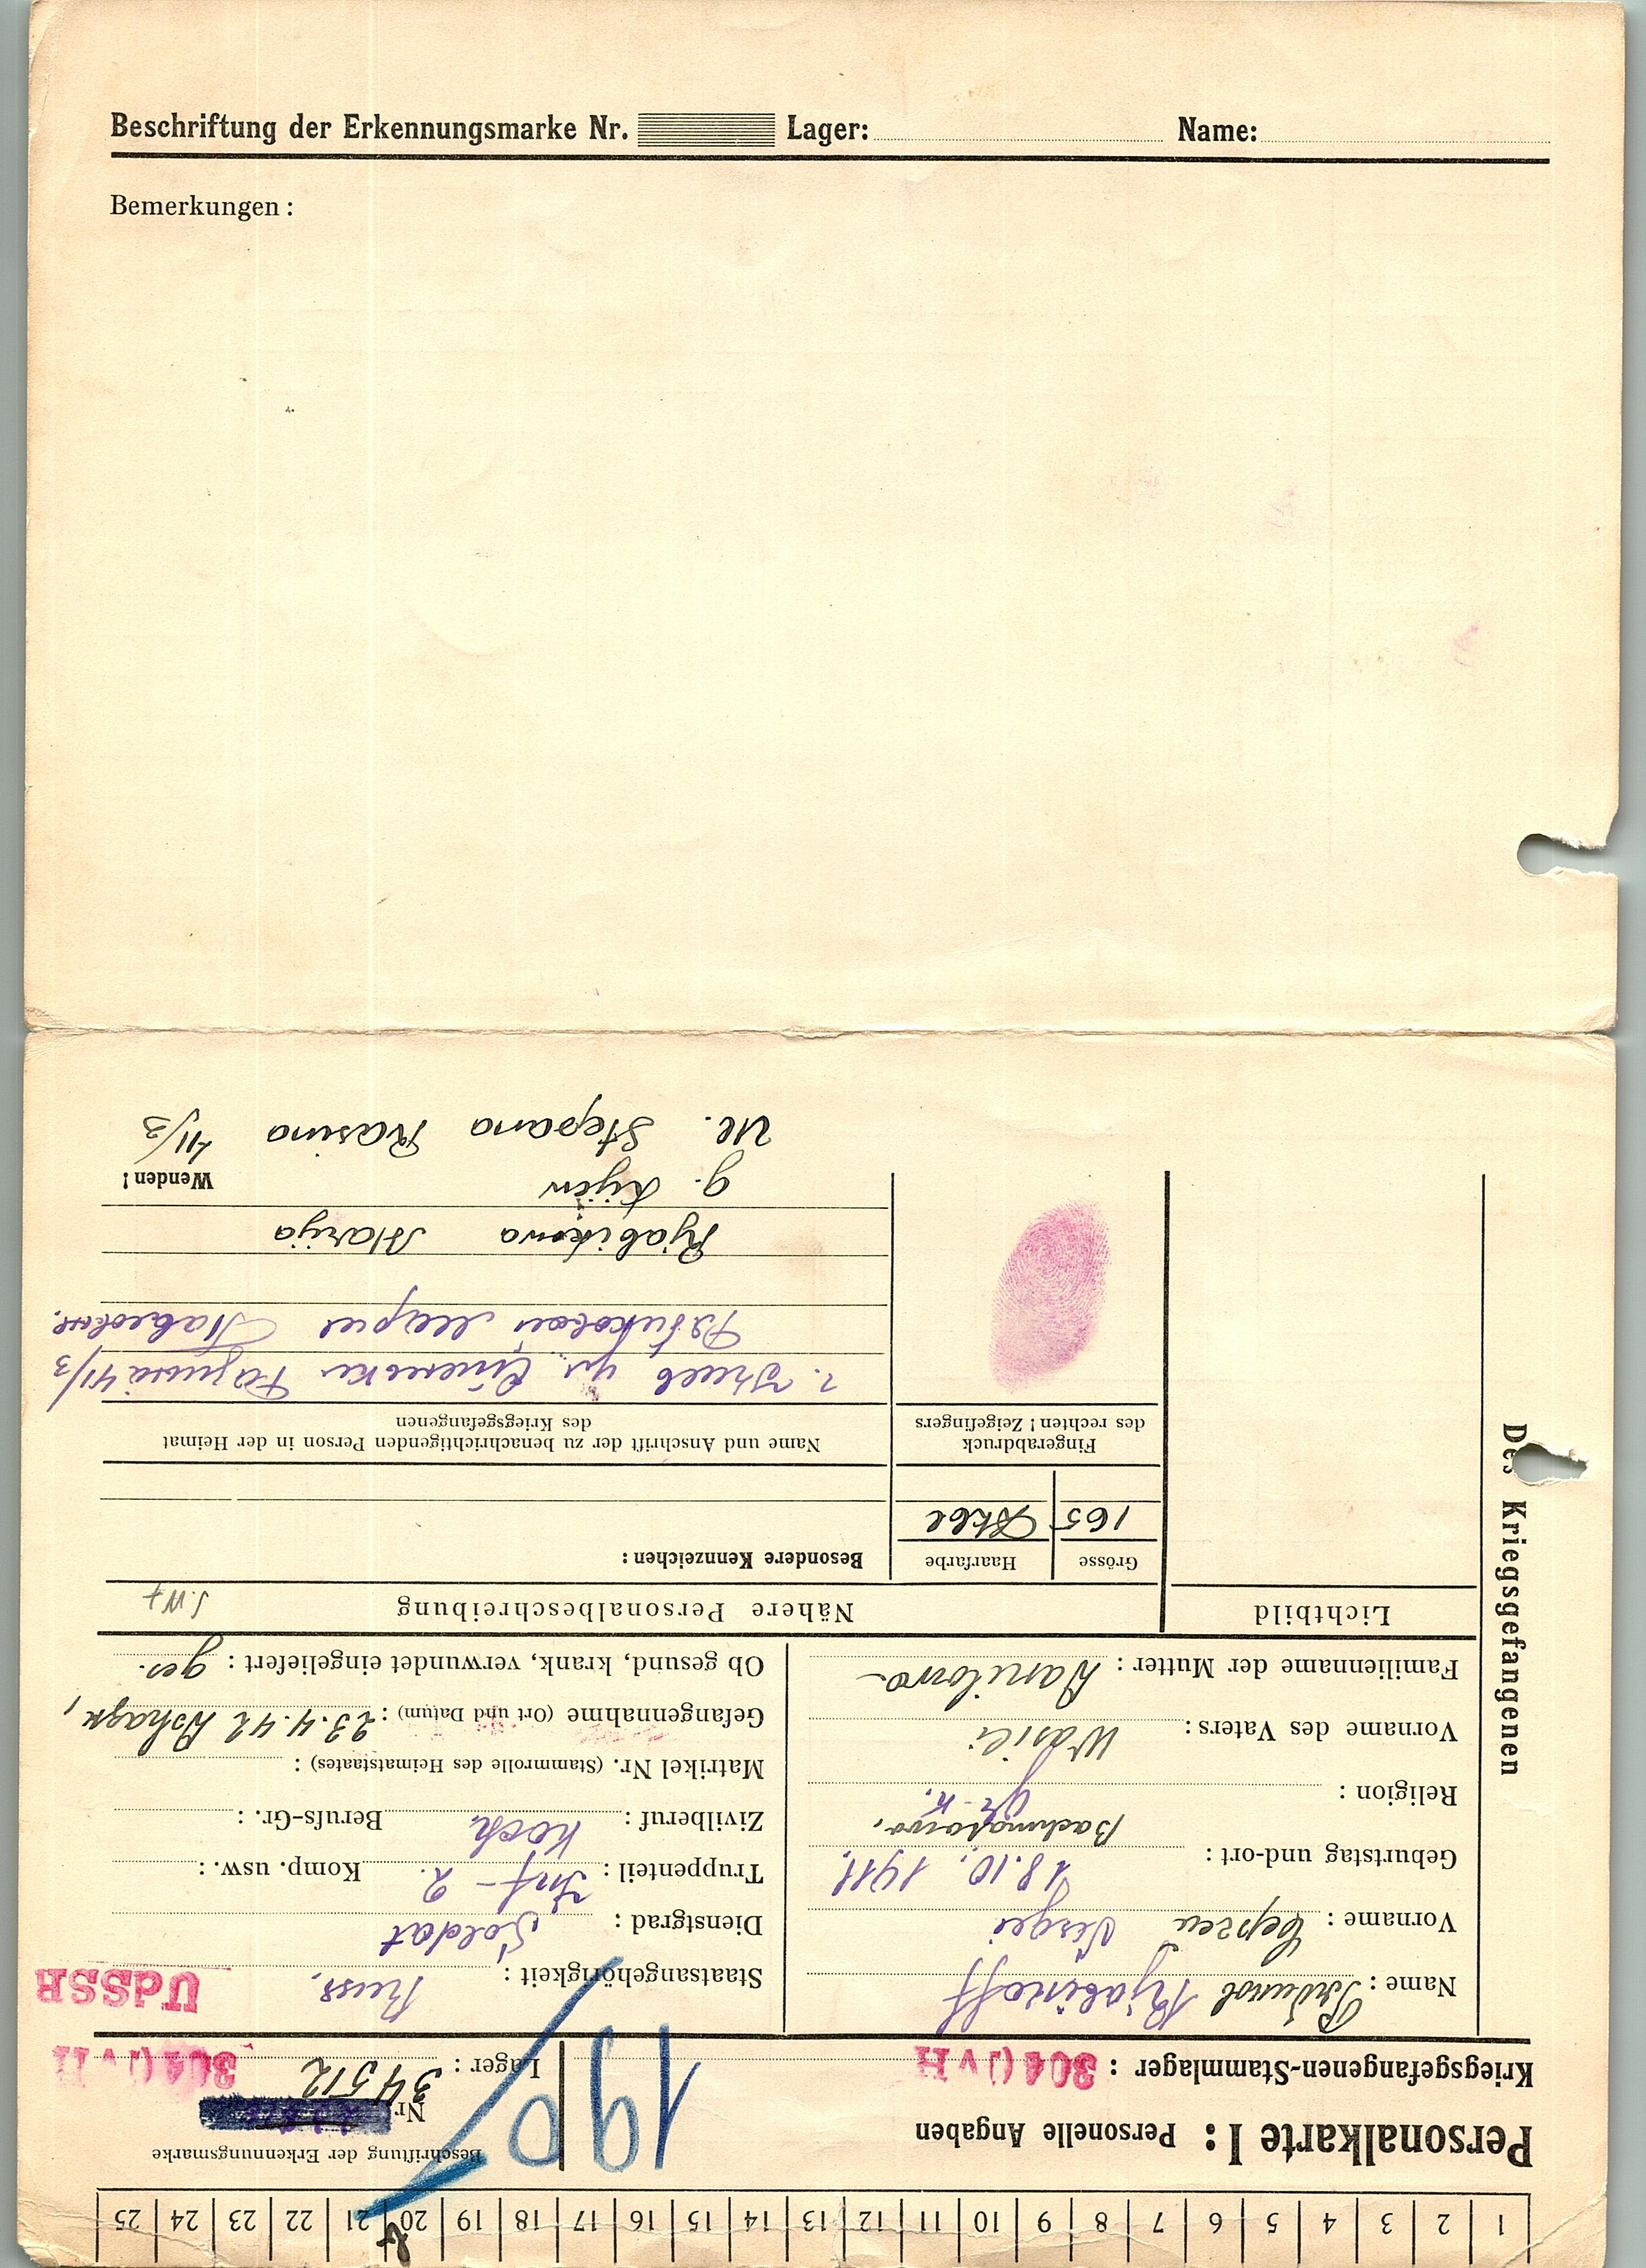 Beschriftung der Erkennungsmarke Nr. Lager: Name:
Bemerkungen:
1 2 3 4 5 6 7 8 9 10 11 12 13 14 15 16 17 18 19 20 21 22 23 24 25
Personalkarte I: Personelle Angaben
Beschriftung der Erkennungsmarke
Nr. 34512
Kriegsgefangenen-Stammlager: 304 (IV H)
Lager: 304 (IV H)
Des Kriegsgefangenen
Name: Rjabikoff
Vorname: Сергей Sergei
Geburtstag und -ort: 18.10.1911.
Religion: gr.-k.
Vorname des Vaters: Wasili
Familienname der Mutter: Danilowa
Staatsangehörigkeit: Russ. UdSSR
Dienstgrad: Soldat
Truppenteil: Inf - 2. Komp. usw.:
Zivilberuf: Koch Berufs-Gr.:
Matrikel Nr. (Stammrolle des Heimatstaates):
Gefangennahme (Ort und Datum): 23.4.42
Ob gesund, krank, verwundet eingeliefert: ges.
Lichtbild
Nähere Personalbeschreibung
Grösse
Haarfarbe
Besondere Kennzeichen:
165
Fingerabdruck
des rechten! Zeigefingers
Name und Anschrift der zu benachrichtigenden Person in der Heimat
des Kriegsgefangenen
ул. Разина 41/3
Рябикова Мария
Rjabikowa Marija
g. Kijew
Wenden!
Ul. Stepana Rasina 41/3